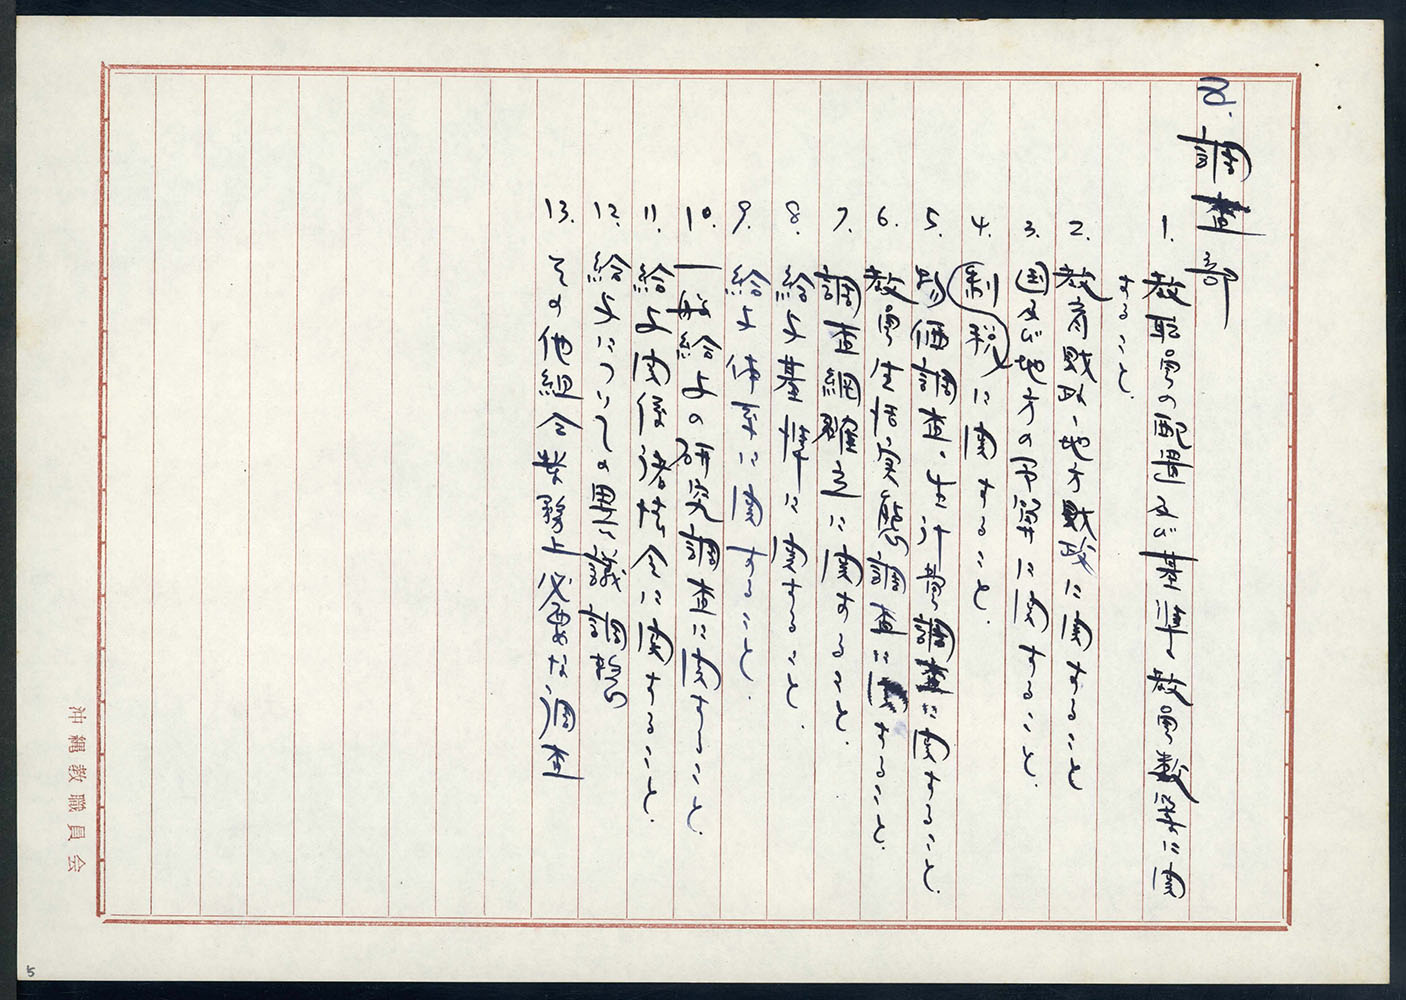 d. 調査部
1. 教職員の配置及び基準、教員数等に関
すること、
2. 教育財政、地方財政に関すること
3. 国及び地方の予算に関すること、
4. 制税に関すること、
5. 物価調査、生計費調査に関すること、
6. 教員生活実態調査に関すること、
7. 調査網確立に関すること、
8. 給与基準に関すること、
9. 給与体系に関すること、
10. 一般給与の研究調査に関すること、
11. 給与関係諸法令に関すること、
12. 給与についての異議調整
13. その他組合業務上必要な調査
沖縄教職員会
5